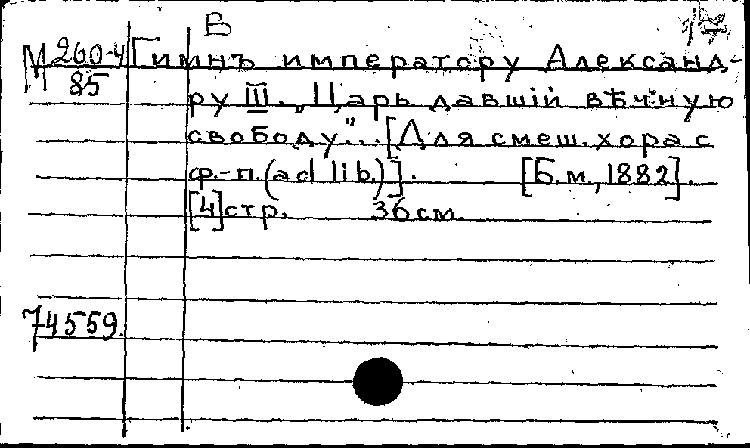 В
М 260-4 Гимнъ императору Александ-
85 ру III. „Царь давшiй вѣчную
свободу"...[Для смеш. хора с
ф.-п. (ad lib.)]. [Б.м., 1882].
[4] стр. 36 см.
74559.